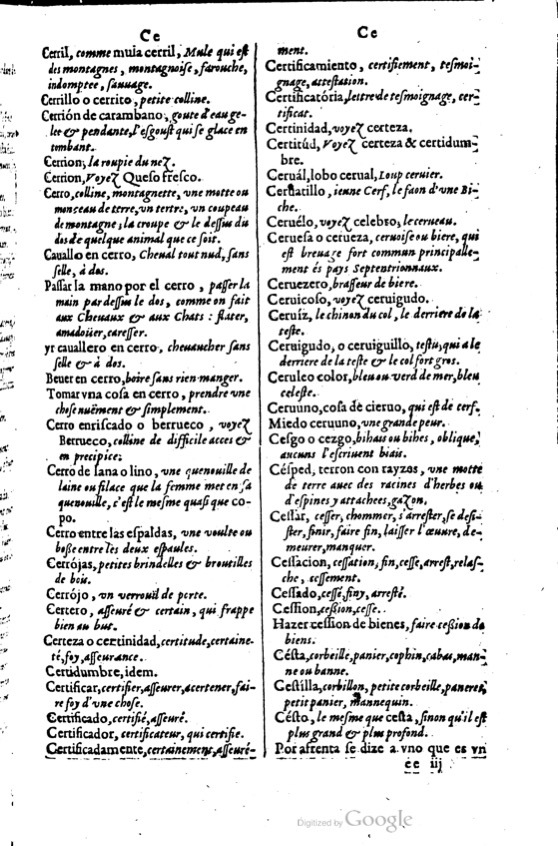 Ce
Cerril, comme muia cerril, Mule qui est
des montagnes, montagnoise, farouche,
indomptee, sauuage.
Cerrillo o cerrito, petite colline.
Cerrión de carambano, goute d'eau ge-
lee & pendante, l'esgoust qui se glace en
tombant.
Cerrion, la roupie du nez.
Cerrion, Voyez Queso fresco.
Cerro, colline, montagnette, vne motte ou
monceau de terre, vn tertre, vn coupeau
de montagne; la croupe & le dessus du
dos de quelque animal que ce soit.
Cauallo en cerro, Cheual tout nud, sans
selle, à dos.
Passar la mano por el cerro, passer la
main par dessus le dos, comme on fait
aux Cheuaux & aux Chats: flater,
amadoüer, caresser.
yr cauallero en cerro, cheuaucher sans
selle & à dos.
Beuer en cerro, boire sans rien manger.
Tomar vna cosa en cerro, prendre vne
chose nuëment & simplement.
Cerro enriscado o berrueco, voyez
Berrueco, colline de difficile acces &
en precipice;
Cerro de lana o lino, vne quenouille de
laine ou filace que la femme met en sa
quenouille, c'est le mesme quasi que co-
po.
Cerro entre las espaldas, vne voulte ou
bosse entre les deux espaules.
Cerrójas, petites brindelles & broutilles
de bois.
Cerrójo, vn verrouil de porte.
Certero, asseuré & certain, qui frappe
bien au but.
Certeza o certinidad, certitude, certaine-
té, foy, asseurance.
Certidumbre, idem.
Certificar, certifier, asseurer, acertener, fai-
re foy d'vne chose.
Certificado, certifié, asseuré.
Certificador, certificateur, qui certifie.
Certificadamente, certainement, asseuré-
Ce
ment.
Certificamiento, certifiement, tesmoi-
gnage, attestation.
Certificatória, lettre de tesmoignage, cer-
tificat.
Certinidad, voyez certeza.
Certitúd, Voyez certeza & certidum-
bre.
Ceruál, lobo cerual, Loup ceruier.
Ceruatillo, ieune Cerf, le faon d'vne Bi-
che.
Ceruélo, voyez celebro, le cerueau.
Ceruesa o cerueza, ceruoise ou biere, qui
est breuage fort commun principale-
ment és pays Septentrionnaux.
Ceruezero, brasseur de biere.
Ceruicoso, voyez ceruigudo.
Ceruíz, le chinon du col, le derriere de la
teste.
Ceruigudo, o ceruiguillo, testu, qui a le
derriere de la teste & le col fort gros.
Ceruleo color, bleu ou verd de mer, bleu
celeste.
Ceruuno, cosa de cieruo, qui est de cerf.
Miedo ceruuno, vne grande peur.
Cesgo o cezgo, bihais ou bihes, oblique,
aucuns l'escriuent biais.
Césped, terron con rayzos, vne motte
de terre auec des racines d'herbes ou
d'espines y attachees, gazon.
Cessar, cesser, chommer, s'arrester, se desi-
ster, finir, faire fin, laisser l'œuure, de-
meurer, manquer.
Cessacion, cessation, fin, cesse, arrest, relas-
che, cessement.
Cessado, cessé, finy, arresté.
Cession, cession, cesse.
Hazer cession de bienes, faire cession de
biens.
Césta, corbeille, panier, cophin, cabas, man-
ne ou banne.
Cestilla, corbillon, petite corbeille, paneret,
petit panier, mannequin.
Césto, le mesme que cesta, sinon qu'il est
plus grand & plus profond.
Por afrenta se dize a vno que es vn
ee iij
Digitized by Google